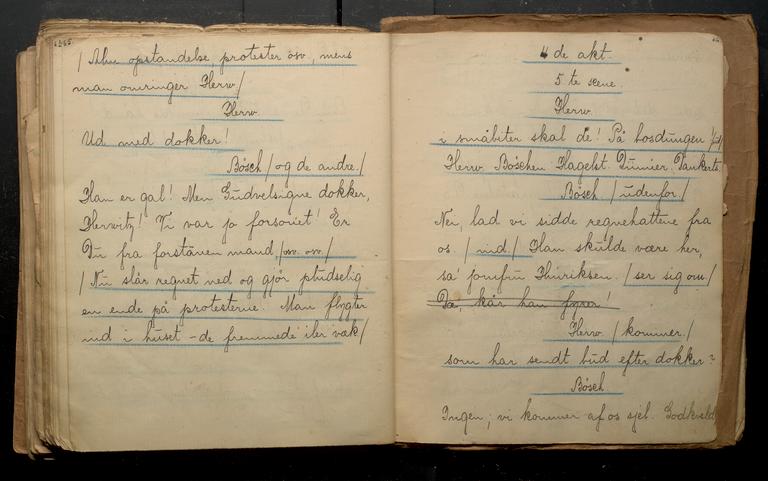 / Alm opstandelse protester osv, mens
man omringer Herw /
Herw.
Ud med dokker!
Bösch / og de andre. /
Han er gal! Men Gudvelsigne dokker,
Herwitz! Vi var jo forsonet! Er
Du fra forstanen mand, / osv. osv. /
/ Nu slår regnet ned og gjör pludselig
en ende på protesterne. Man flygter
ind i huset - de fremmede iler væk /
4 de akt.
5 te scene.
Herw.
i småbiter skal de! På bosdungen
Herw. Böschen Hagelst. Dunier. Dankerts.
Bösch / udenfor /
Nei, lad vi sidde regnehattene fra
os. / ind / Han skulde være her,
sa' jomfru Hinriksen. / ser sig om /
Herw. / kommer. /
som har sendt bud efter dokker?
Bösch
Ingen; vi kommer af os sjel. Godkveld